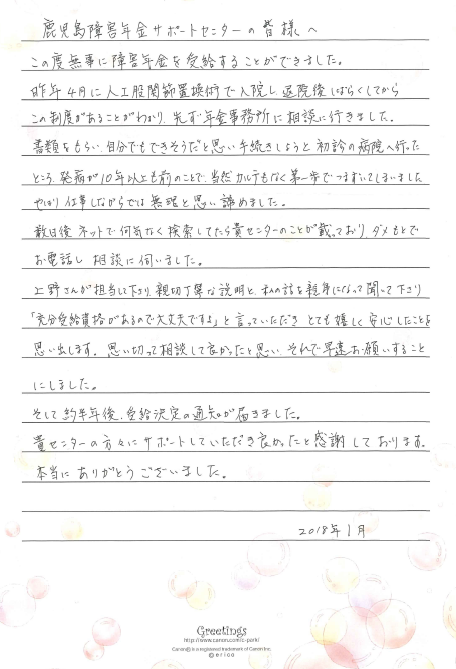 鹿児島障害年金サポートセンターの皆様へ
この度無事に障害年金を受給することができました。
昨年4月に人工股関節置換術で入院し退院後しばらくしてから
この制度があることがわかり、先ず年金事務所に相談に行きました。
書類をもらい自分でもできそうだと思い手続きしようと初診の病院へ行った
ところ、発病が10年以上も前のことで、当然カルテもなく第一歩でつまずいてしまいました
やはり仕事しながらでは無理と思い諦めました。
数日後ネットで何気なく検索してたら貴センターのことが載っており、ダメもとで
お電話し相談に伺いました。
上野さんが担当して下さり、親切丁寧な説明と、私の話を親身になって聞いて下さり
「充分受給資格があるので大丈夫ですよ」と言っていただきとても嬉しく安心したことを
思い出します。思い切って相談して良かったと思い、それで早速お願いすること
にしました。
そして約半年後、受給決定の通知が届きました。
貴センターの方々にサポートしていただき良かったと感謝しております。
本当にありがとうございました。
2018年1月
Greetings
http://www.canon.com/c-park/
Canon® is a registered trademark of Canon Inc.
© erico